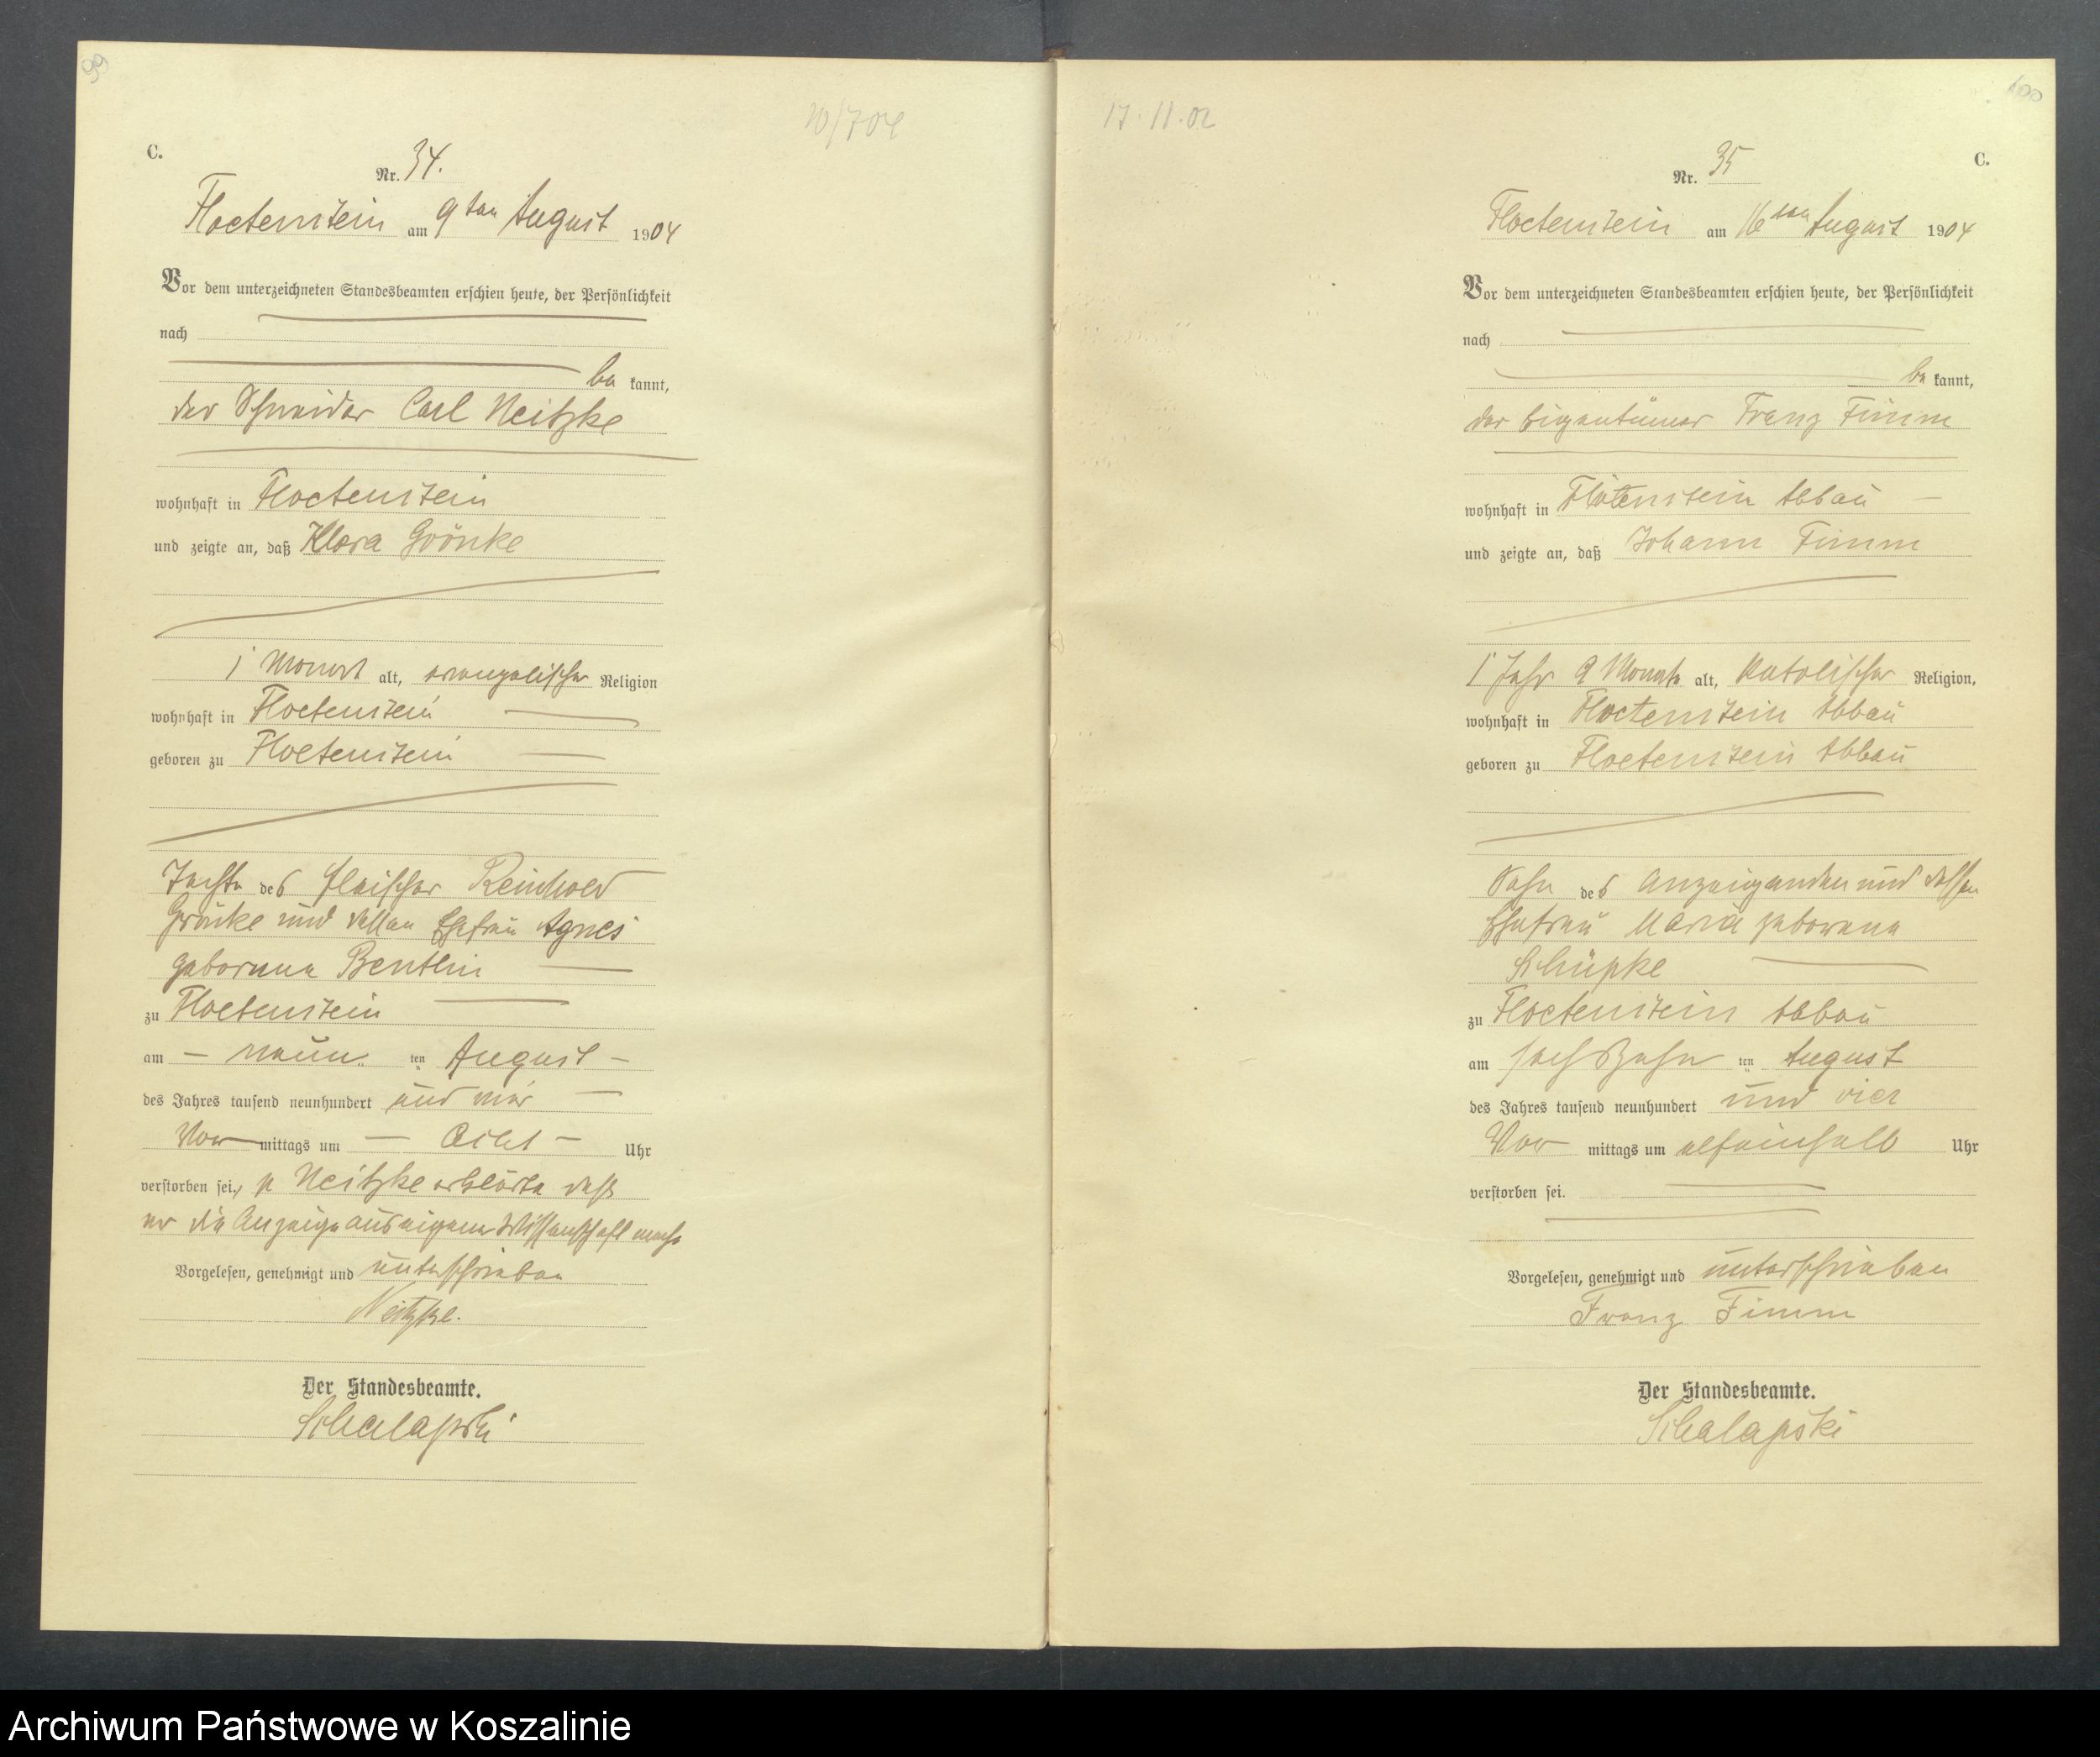 99
10/704
C.
Nr. 34.
Floetenstein am 9ten August 1904
Vor dem unterzeichneten Standesbeamten erschien heute, der Persönlichkeit
nach
be kannt,
der Schneider Carl Neitzke
wohnhaft in Floetenstein
und zeigte an, daß Klara Grönke
1 Monat alt, evangelischer Religion
wohnhaft in Floetenstein
geboren zu Floetenstein
Tochter des Fleischer Reinhold
Grönke und dessen Ehefrau Agnes
geborene Benthin
zu Floetenstein
am – neun ten August –
des Jahres tausend neunhundert und vier
Vor mittags um – Acht – Uhr
verstorben sei, p Neitzke erklärte daß
er die Anzeige aus eigener Wissenschaft mache
Vorgelesen, genehmigt und unterschrieben
Neitzke.
Der Standesbeamte.
Schalapski
100
17.11.02
C.
Nr. 35
Floetenstein am 16ten August 1904
Vor dem unterzeichneten Standesbeamten erschien heute, der Persönlichkeit
nach
be kannt,
der Eigentümer Franz Fimm
wohnhaft in Flötenstein Abbau –
und zeigte an, daß Johann Fimm
1 Jahr 9 Monate alt, katolischer Religion,
wohnhaft in Floetenstein Abbau
geboren zu Floetenstein Abbau
Sohn des Anzeigenden und dessen
Ehefrau Maria geborene
Schüpke
zu Floetenstein Abbau
am sechszehn ten August
des Jahres tausend neunhundert und vier
Vor mittags um elfeinhalb Uhr
verstorben sei.
Vorgelesen, genehmigt und unterschrieben
Franz Fimm
Der Standesbeamte.
Schalapski
Archiwum Państwowe w Koszalinie